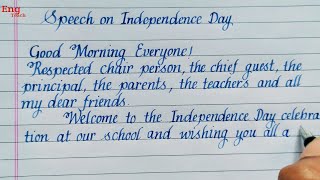 Eng
Teach
Speech on Independence Day.
Good Morning Everyone!
Respected chair person, the chief guest, the
principal, the parents, the teachers and all
my dear friends.
Welcome to the Independence Day celebra
tion at our school and wishing you all a